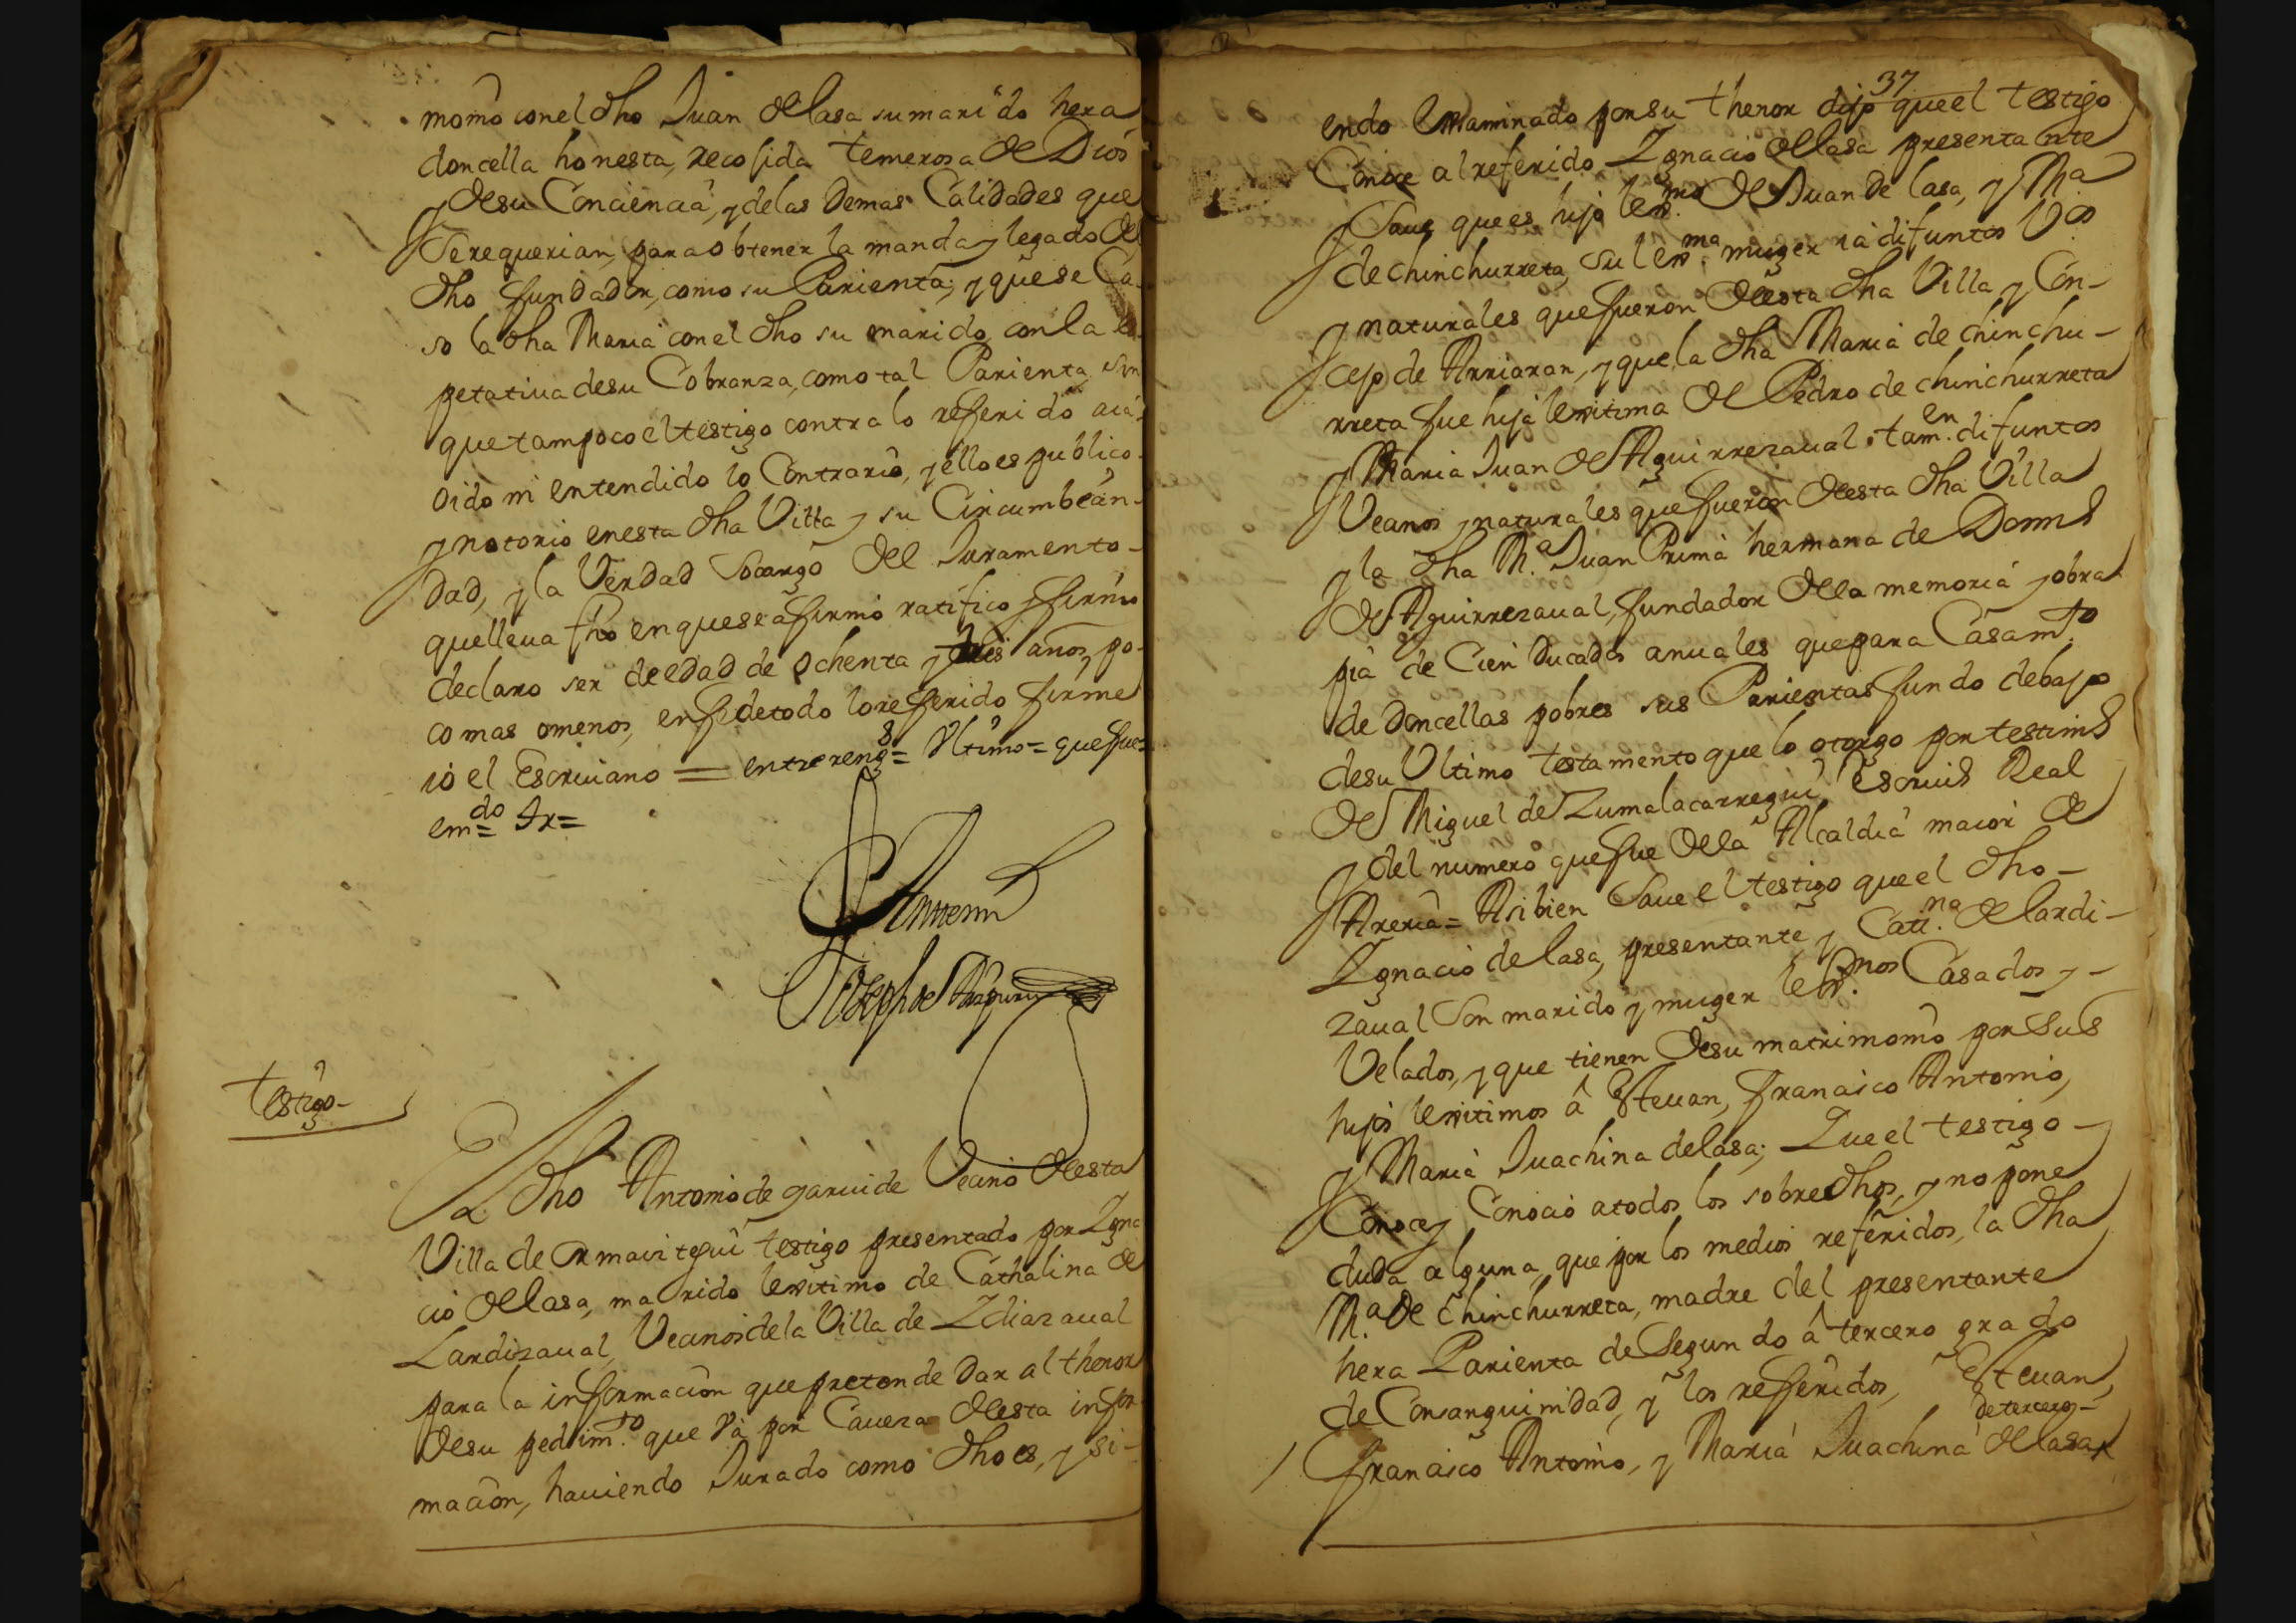 momô con el dho Juan de lasa su marido hera
doncella honesta, recosida temerosa de Dios
y de su Conciencia, y de las Demas Calidades que
se requerian, para obtener la manda y legado del
dho fundador, como su Parienta; y que se Ca
so la dha Maria con el dho su marido, con la
petatiua de su Cobranza, como tal Parienta, sin
que tampoco el testigo contra lo referido aia
oido ni entendido lo Contrario, y ello es publico
y notorio en esta dha Villa y su Circumbecin-
dad, y la Verdad Socargo del Juramento-
que lleua fho en que se afirmó ratifico y firmo
declaro ser de edad de ochenta y tres años, po-
co mas omenos, en fe de todo lo referido firme
io el Escriuano = entre rengs = Vltimo = que fue =
em.do tr=
Antemi
Joseph de Aizpuru
testigo-
El dho Antonio de garuide Vecino desta
Villa de Ormaiztegui testigo presentado por Igna
cio de lasa, marido lexitimo de Cathalina de
Lardizaual, Vecinos de la Villa de Idiazaual
para la informacion que pretende Dar al thenor
de su pedim.to que Vá por Caueza desta infor
macion, hauiendo Jurado como dho es, y si-
37
endo Examinado por su thenor dijo que el testigo
Conoce al referido Ignacio de lasa presentante
y Saue que es hijo lex.mo de Juan de lasa, y M.a
de chinchurreta, su lex.ma muger ia difuntos V.os
y naturales que fueron desta dha Villa y Con-
cejo de Arriaran, y que la dha Maria de chinchu-
rreta fue hija lexitima de Pedro de chinchurreta
y Maria Juan de Aguirrezaual, tam.en difuntos
Vecinos y naturales que fueron desta dha Villa
y la dha M.a Juan Prima hermana de Domis
de Aguirrezaual, fundador de la memoria y obra
pia de Cien Ducados anuales que para Casam.to
de Doncellas pobres sus Parientas fundo debajo
de su Vltimo testamento que lo otorgo por testims
de Miguel de Zumalacarregui Escriuo Real
y del numero que fue de la Alcaldia maior de
Areria = Asibien Saue el testigo que el dho-
Ignacio de lasa, presentante y Cati.na de lardi-
zaual Son marido y muger lex.mos Casados y-
Velados, y que tienen de su matrimomo por sus
hijos lexitimos â Esteuan, Francisco Antonio,
y Maria Juachina de lasa; Que el testigo-
Conoce y Conocio atodos los sobredhos, y no pone
duda alguna, que por los medios referidos, la dha
M.a de Chinchurreta, madre del presentante
hera Parienta de Segundo â tercero grado
de Consanguinidad, y los referidos, Esteuan,
de tercero-
Francisco Antonio, y Maria Juachina de lasa